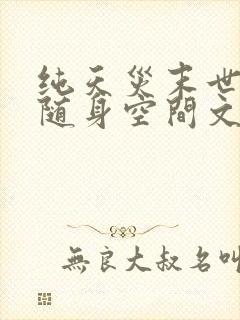 纯天災末世
随身空間文
無良大叔名叫